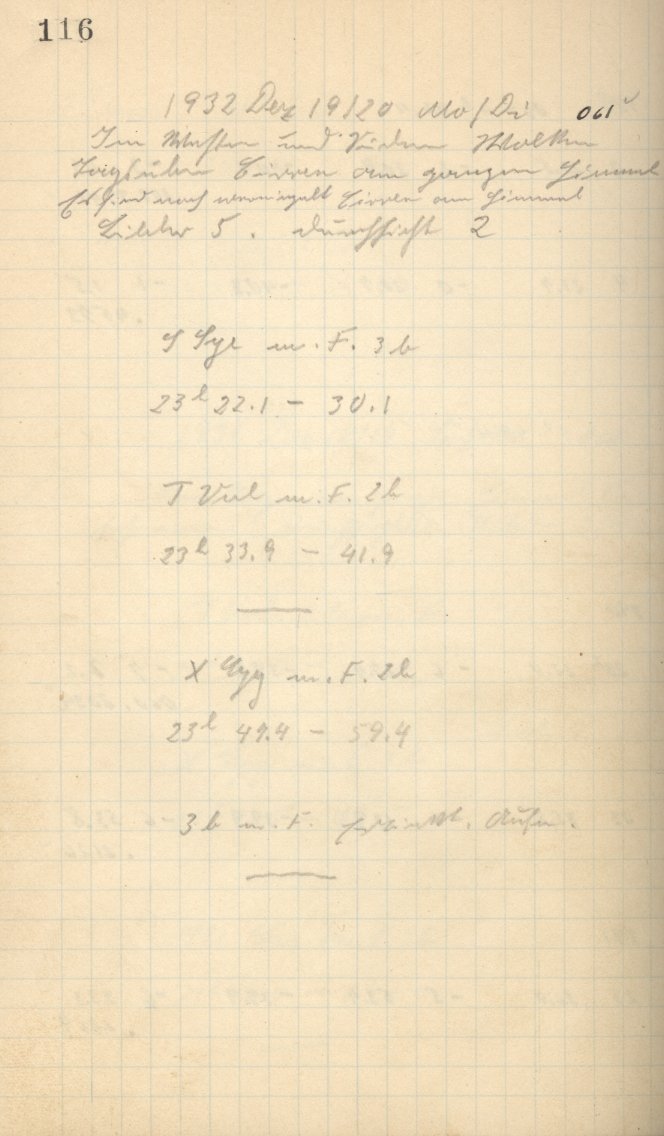 116
1932 Dez 19/20 Mo/Di 061
Im Westen und Süden Wolken
Tagsüber Cirren am ganzen Himmel
Es sind noch vereinzelt Cirren am Himmel
Bilder 5. Durchsicht 2
S Sge m. F. 3 b
23h 22.1 - 30.1
T Vul m. F. 2b
23h 33.9 - 41.9
X Cyg m. F. 2b
23h 49.4 - 59.4
3 b m. F. Aufn.